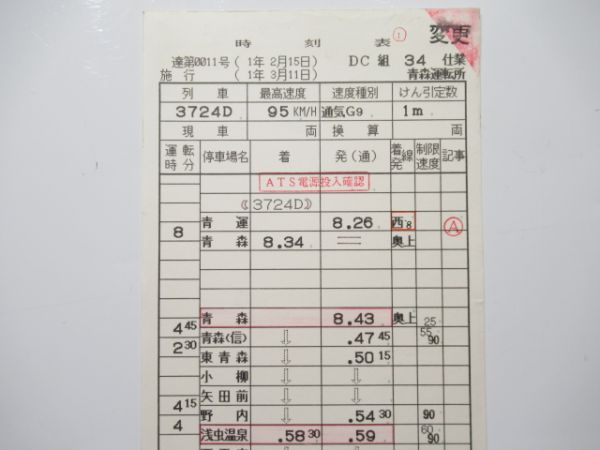 時刻表 ① 変更
達第0011号 (1年 2月15日) DC組 34 仕業
施行 (1年 3月11日) 青森運転所
列車 最高速度 速度種別 けん引定数
3724D 95KM/H 通気G9 1m
現車 両 換算 両
運転時分 停車場名 着 発(通) 着発線 制限速度 記事
ATS電源投入確認
《3724D》
8 青運 8.26 西8 Ⓐ
青森 8.34 ＝ 奥上
青森 8.43 奥上 25
4 45 青森(信) ⇩ .47 45 55 90
2 30 東青森 ⇩ .50 15
小柳 ⇩ ⇩
矢田前 ⇩ ⇩
4 15 野内 ⇩ .54 30 90
4 浅虫温泉 .58 30 .59 60 90